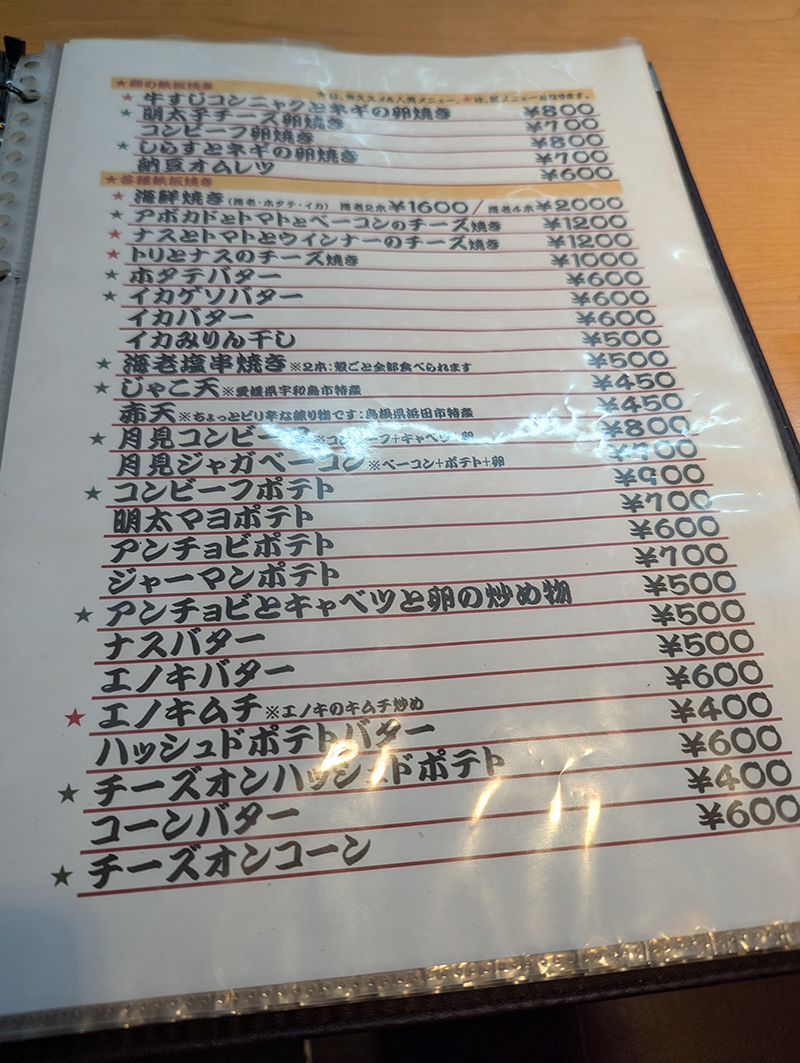 ★卵の鉄板焼き
★は、オススメ&人気メニュー。★は、新メニューになります。
★牛すじコンニャクとネギの卵焼き ¥800
★明太子チーズ卵焼き ¥700
コンビーフ卵焼き ¥800
★しらすとネギの卵焼き ¥700
納豆オムレツ ¥600
★各種鉄板焼き
★海鮮焼き(海老・ホタテ・イカ) 海老2本¥1600/海老4本¥2000
★アボカドとトマトとベーコンのチーズ焼き ¥1200
★ナスとトマトとウインナーのチーズ焼き ¥1200
★トリとナスのチーズ焼き ¥1000
★ホタテバター ¥600
★イカゲソバター ¥600
イカバター ¥600
イカみりん干し ¥500
★海老塩串焼き※2本:殻ごと全部食べられます ¥500
★じゃこ天※愛媛県宇和島市特産 ¥450
赤天※ちょっとピリ辛な練り物です:島根県浜田市特産 ¥450
★月見コンビーフ※コンビーフ+キャベツ+卵 ¥800
月見ジャガベーコン※ベーコン+ポテト+卵
★コンビーフポテト ¥500
明太マヨポテト ¥700
アンチョビポテト ¥600
ジャーマンポテト ¥700
★アンチョビとキャベツと卵の炒め物 ¥500
ナスバター ¥500
エノキバター ¥500
★エノキムチ※エノキのキムチ炒め ¥600
ハッシュドポテトバター ¥400
★チーズオンハッシュドポテト ¥600
コーンバター ¥400
★チーズオンコーン ¥600